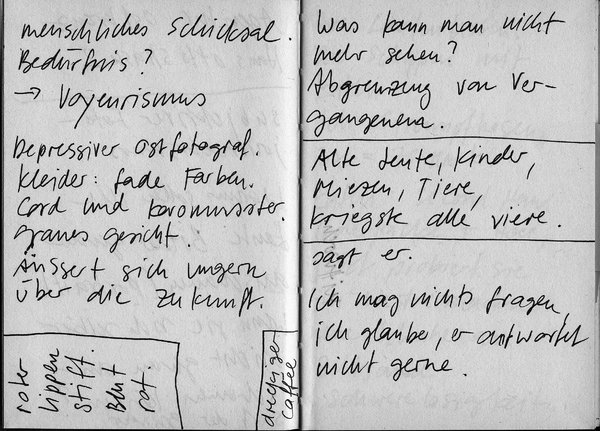 menschliches Schicksal.
Bedürfnis?
→ Voyeurismus
Depressiver Ostfotograf.
Kleider: fade Farben.
Cord und Karomuster.
graues gesicht.
Äussert sich ungern
über die Zukunft.
roter
Lippen
stift.
Blut
rot.
dreckiger
Caffee
Was kann man nicht
mehr sehen?
Abgrenzung von Ver-
gangenem.
Alte Leute, Kinder,
Miezen, Tiere,
kriegste alle viere.
sagt er.
Ich mag nichts fragen,
ich glaube, er antwortet
nicht gerne.